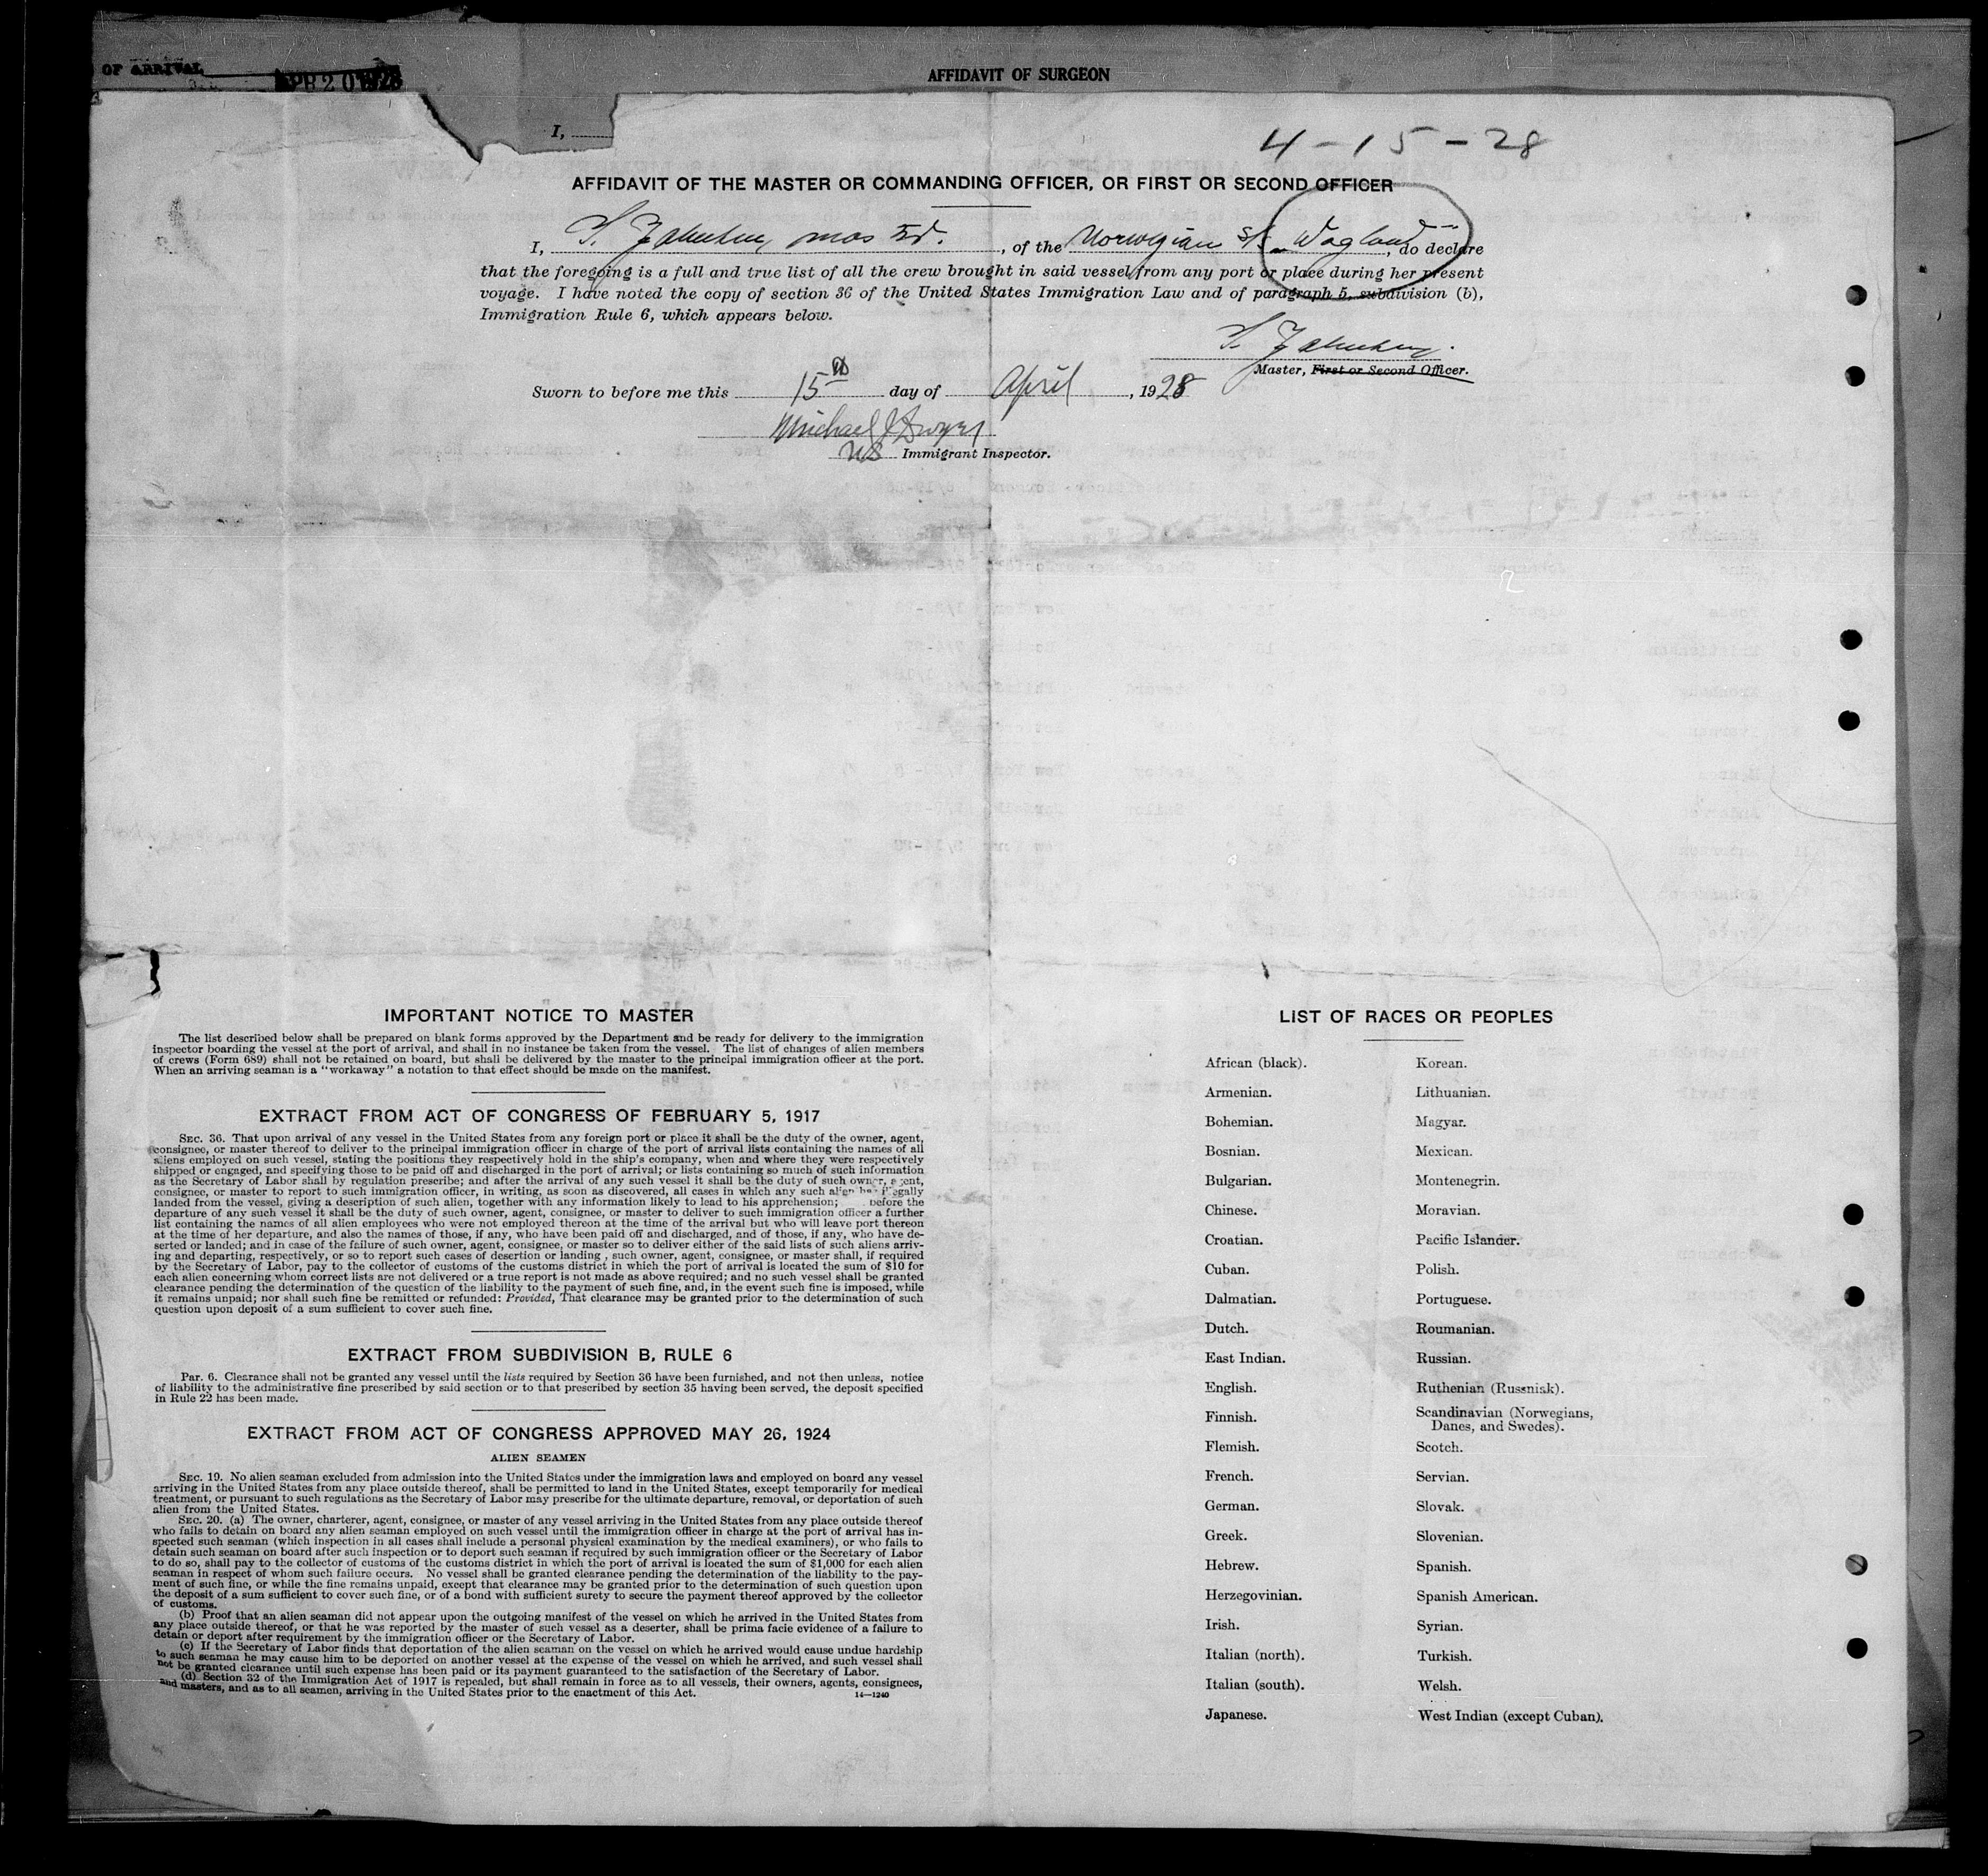 OF ARRIVAL
APR 20 1928
AFFIDAVIT OF SURGEON
I,
4-15-28
AFFIDAVIT OF THE MASTER OR COMMANDING OFFICER, OR FIRST OR SECOND OFFICER
I, , of the Norwegian S/S Vogland, do declare
that the foregoing is a full and true list of all the crew brought in said vessel from any port or place during her present
voyage. I have noted the copy of section 36 of the United States Immigration Law and of paragraph 5, subdivision (b),
Immigration Rule 6, which appears below.
Master, First or Second Officer.
Sworn to before me this 15th day of April, 1928
Michael J Dwyer
US Immigrant Inspector.
IMPORTANT NOTICE TO MASTER
The list described below shall be prepared on blank forms approved by the Department and be ready for delivery to the immigration
inspector boarding the vessel at the port of arrival, and shall in no instance be taken from the vessel. The list of changes of alien members
of crews (Form 689) shall not be retained on board, but shall be delivered by the master to the principal immigration officer at the port.
When an arriving seaman is a "workaway" a notation to that effect should be made on the manifest.
EXTRACT FROM ACT OF CONGRESS OF FEBRUARY 5, 1917
SEC. 36. That upon arrival of any vessel in the United States from any foreign port or place it shall be the duty of the owner, agent,
consignee, or master thereof to deliver to the principal immigration officer in charge of the port of arrival lists containing the names of all
aliens employed on such vessel, stating the positions they respectively hold in the ship's company, when and where they were respectively
shipped or engaged, and specifying those to be paid off and discharged in the port of arrival; or lists containing so much of such information
as the Secretary of Labor shall by regulation prescribe; and after the arrival of any such vessel it shall be the duty of such owner, agent,
consignee, or master to report to such immigration officer, in writing, as soon as discovered, all cases in which any such alien has illegally
landed from the vessel, giving a description of such alien, together with any information likely to lead to his apprehension; before the
departure of any such vessel it shall be the duty of such owner, agent, consignee, or master to deliver to such immigration officer a further
list containing the names of all alien employees who were not employed thereon at the time of the arrival but who will leave port thereon
at the time of her departure, and also the names of those, if any, who have been paid off and discharged, and of those, if any, who have de-
serted or landed; and in case of the failure of such owner, agent, consignee, or master so to deliver either of the said lists of such aliens arriv-
ing and departing, respectively, or so to report such cases of desertion or landing , such owner, agent, consignee, or master shall, if required
by the Secretary of Labor, pay to the collector of customs of the customs district in which the port of arrival is located the sum of $10 for
each alien concerning whom correct lists are not delivered or a true report is not made as above required; and no such vessel shall be granted
clearance pending the determination of the question of the liability to the payment of such fine, and, in the event such fine is imposed, while
it remains unpaid; nor shall such fine be remitted or refunded: Provided, That clearance may be granted prior to the determination of such
question upon deposit of a sum sufficient to cover such fine.
EXTRACT FROM SUBDIVISION B, RULE 6
Par. 6. Clearance shall not be granted any vessel until the lists required by Section 36 have been furnished, and not then unless, notice
of liability to the administrative fine prescribed by said section or to that prescribed by section 35 having been served, the deposit specified
in Rule 22 has been made.
EXTRACT FROM ACT OF CONGRESS APPROVED MAY 26, 1924
ALIEN SEAMEN
SEC. 19. No alien seaman excluded from admission into the United States under the immigration laws and employed on board any vessel
arriving in the United States from any place outside thereof, shall be permitted to land in the United States, except temporarily for medical
treatment, or pursuant to such regulations as the Secretary of Labor may prescribe for the ultimate departure, removal, or deportation of such
alien from the United States.
SEC. 20. (a) The owner, charterer, agent, consignee, or master of any vessel arriving in the United States from any place outside thereof
who fails to detain on board any alien seaman employed on such vessel until the immigration officer in charge at the port of arrival has in-
spected such seaman (which inspection in all cases shall include a personal physical examination by the medical examiners), or who fails to
detain such seaman on board after such inspection or to deport such seaman if required by such immigration officer or the Secretary of Labor
to do so, shall pay to the collector of customs of the customs district in which the port of arrival is located the sum of $1,000 for each alien
seaman in respect of whom such failure occurs. No vessel shall be granted clearance pending the determination of the liability to the pay-
ment of such fine, or while the fine remains unpaid, except that clearance may be granted prior to the determination of such question upon
the deposit of a sum sufficient to cover such fine, or of a bond with sufficient surety to secure the payment thereof approved by the collector
of customs.
(b) Proof that an alien seaman did not appear upon the outgoing manifest of the vessel on which he arrived in the United States from
any place outside thereof, or that he was reported by the master of such vessel as a deserter, shall be prima facie evidence of a failure to
detain or deport after requirement by the immigration officer or the Secretary of Labor.
(c) If the Secretary of Labor finds that deportation of the alien seaman on the vessel on which he arrived would cause undue hardship
to such seaman he may cause him to be deported on another vessel at the expense of the vessel on which he arrived, and such vessel shall
not be granted clearance until such expense has been paid or its payment guaranteed to the satisfaction of the Secretary of Labor.
(d) Section 32 of the Immigration Act of 1917 is repealed, but shall remain in force as to all vessels, their owners, agents, consignees,
and masters, and as to all seamen, arriving in the United States prior to the enactment of this Act.
14—1240
LIST OF RACES OR PEOPLES
African (black).
Armenian.
Bohemian.
Bosnian.
Bulgarian.
Chinese.
Croatian.
Cuban.
Dalmatian.
Dutch.
East Indian.
English.
Finnish.
Flemish.
French.
German.
Greek.
Hebrew.
Herzegovinian.
Irish.
Italian (north).
Italian (south).
Japanese.
Korean.
Lithuanian.
Magyar.
Mexican.
Montenegrin.
Moravian.
Pacific Islander.
Polish.
Portuguese.
Roumanian.
Russian.
Ruthenian (Russniak).
Scandinavian (Norwegians,
Danes, and Swedes).
Scotch.
Servian.
Slovak.
Slovenian.
Spanish.
Spanish American.
Syrian.
Turkish.
Welsh.
West Indian (except Cuban).